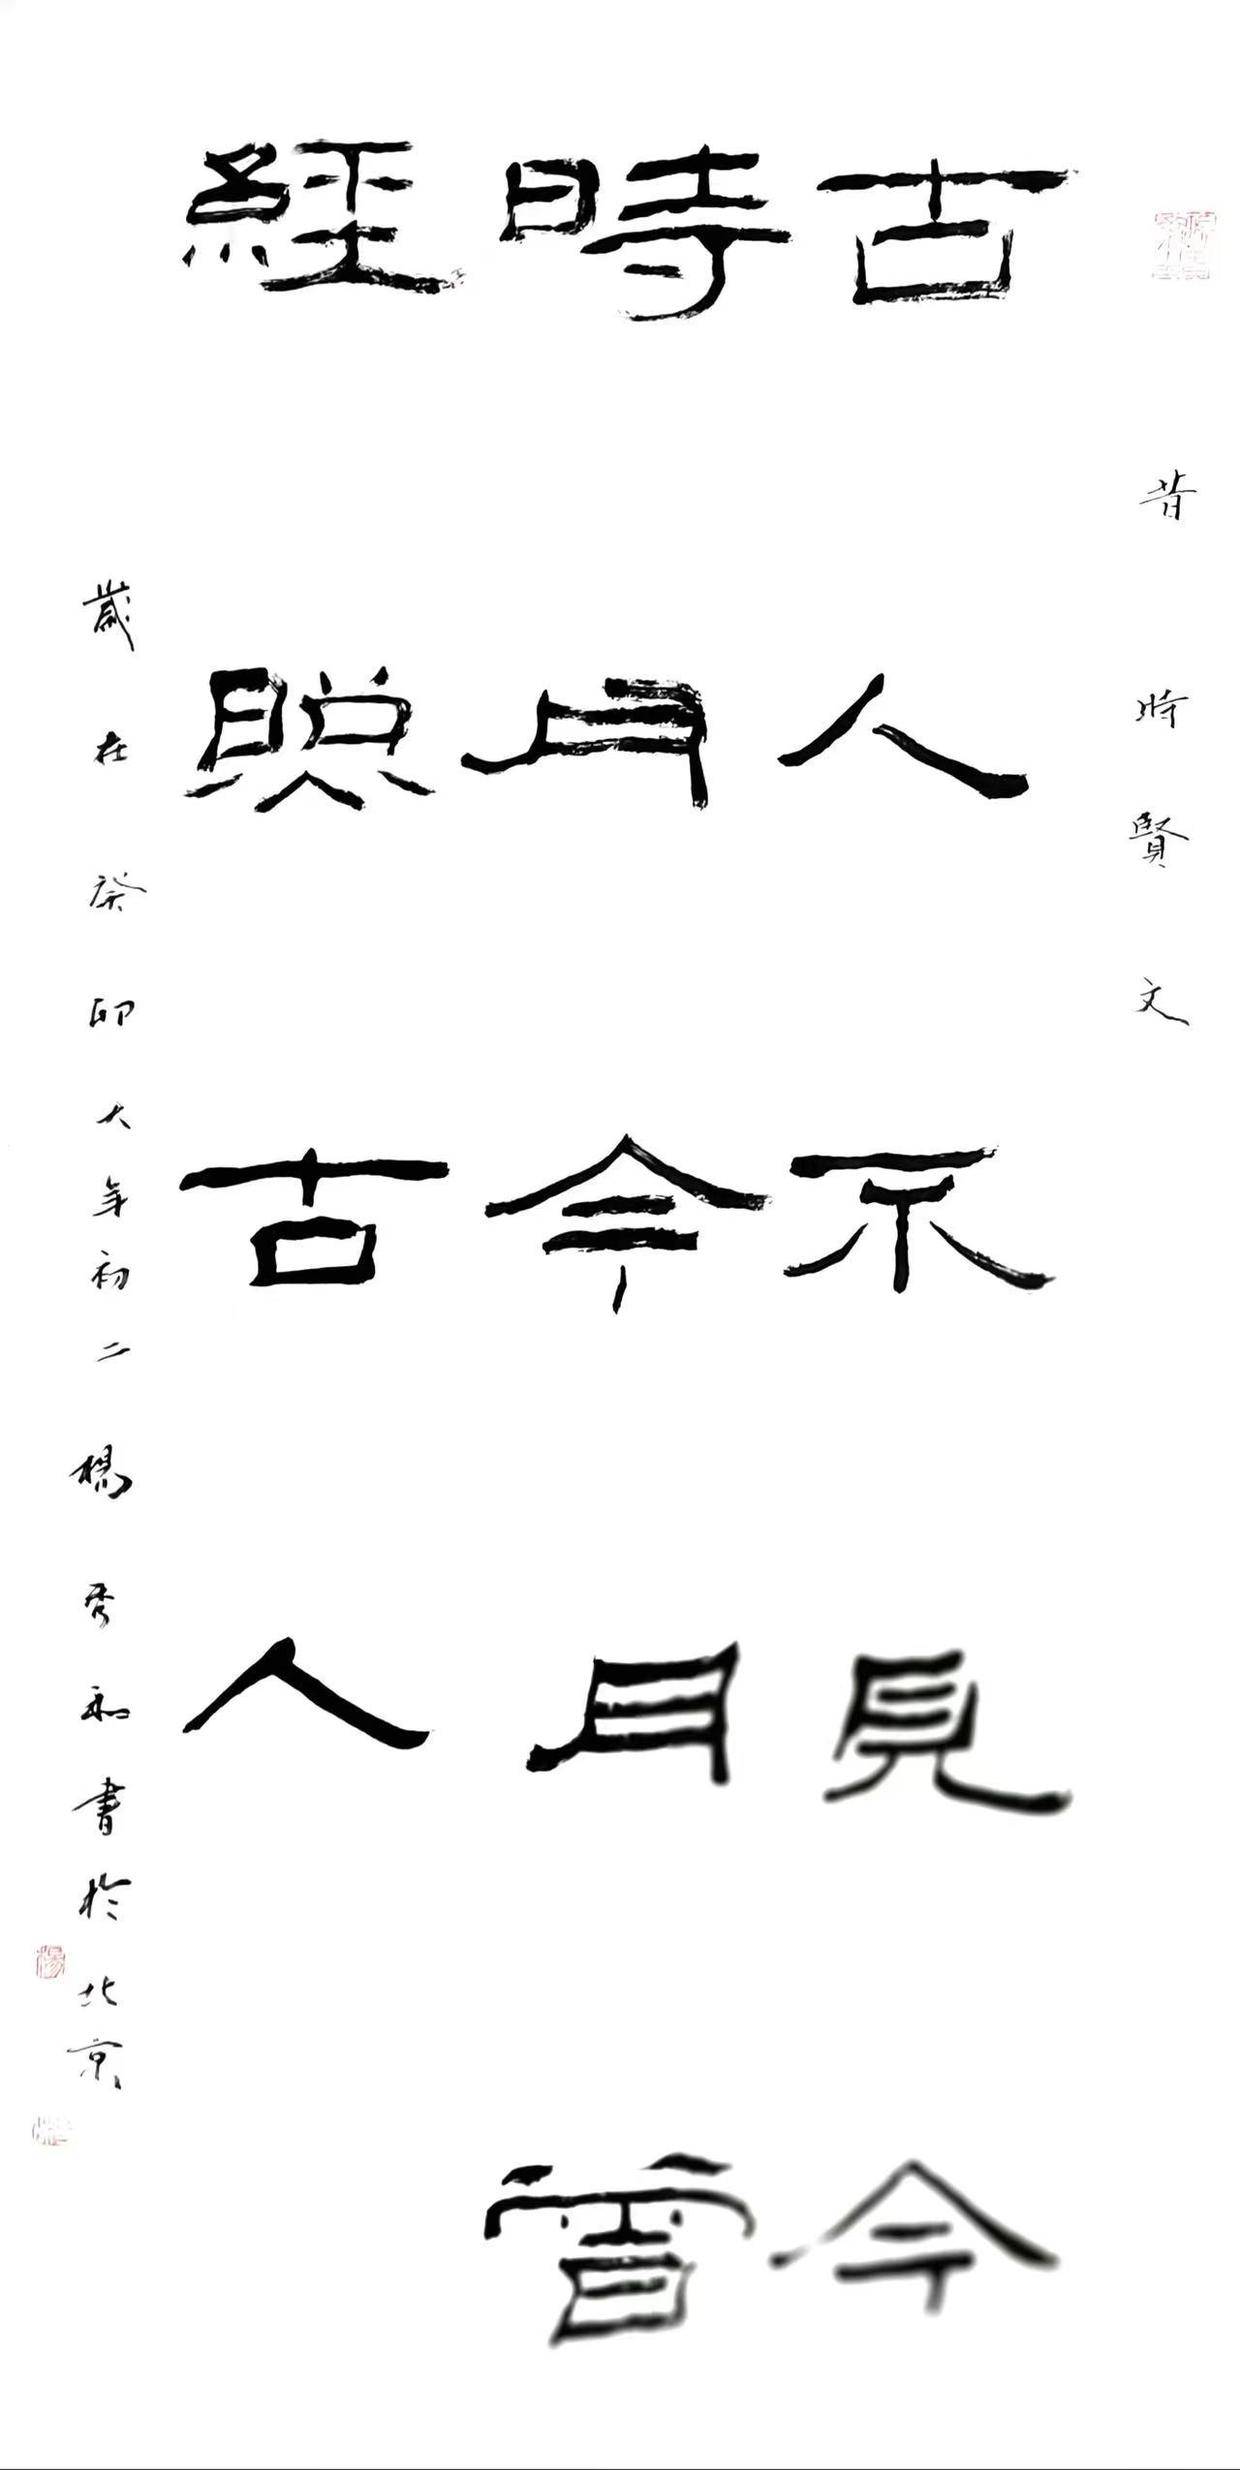 昔時賢文
古人不見今
時月今月曾
經照古人
歲在癸卯大年初二楊秀和書於北京
楊